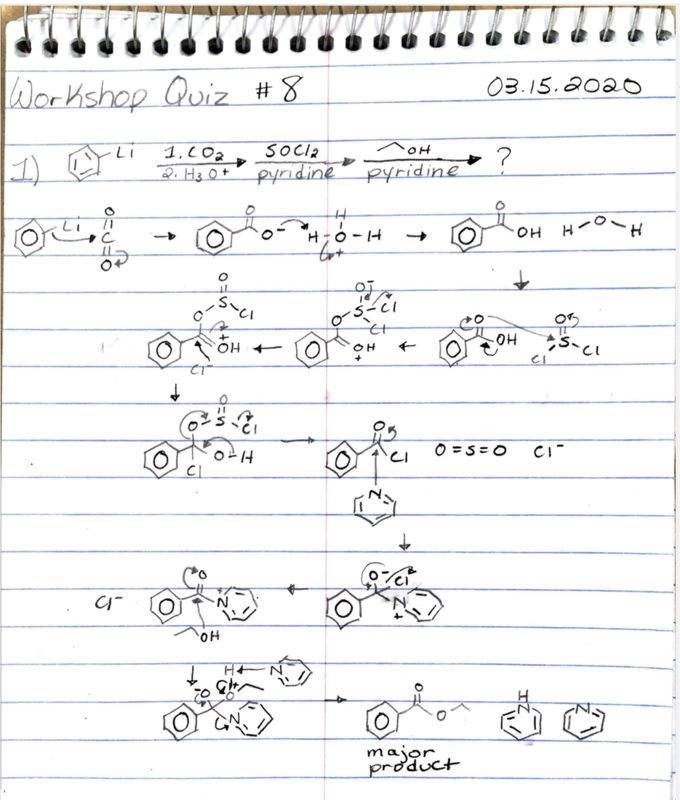 Workshop Quiz #8 03.15.2020
1) Li 1. CO2 SOCl2 OH ?
2. H3O+ pyridine pyridine
Li O C O O O- H H-O-H + O OH H O H
O S O Cl O +OH Cl- O- S Cl O Cl OH + O OH O S Cl Cl
O S O Cl O-H Cl O Cl N O=S=O Cl-
Cl- O N+ OH O- Cl N+
H O+ -O N N O O H N N
major
product